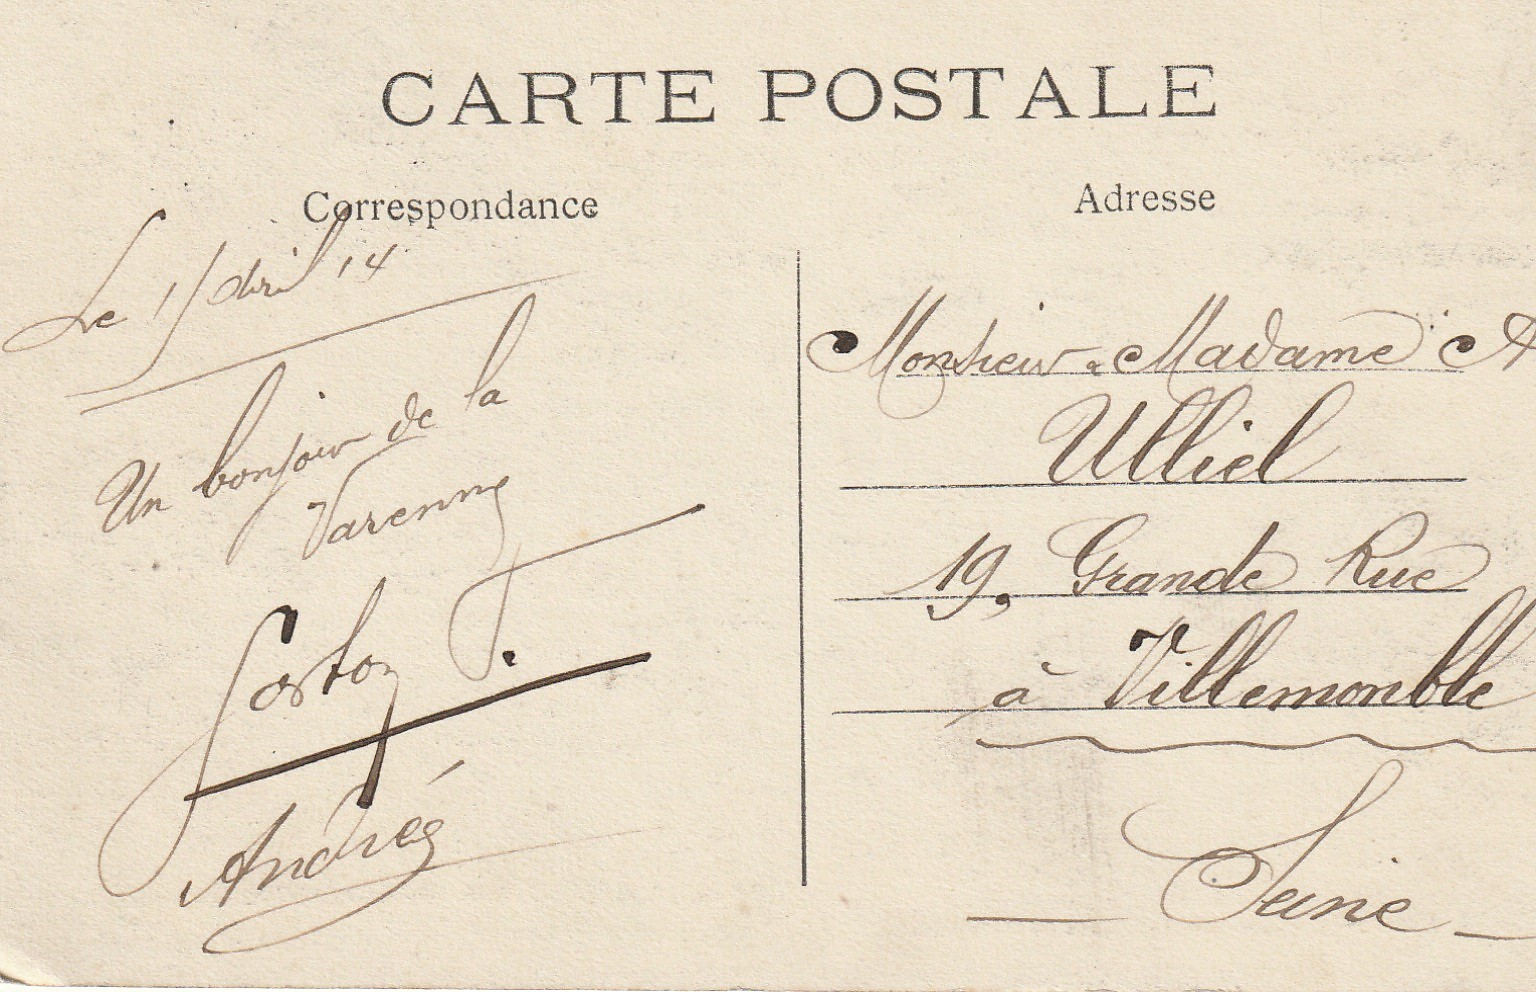 CARTE POSTALE
Correspondance
Adresse
Le 1 / avril 14
Un bonjour de la
Varenne
Gaston
Andrée
Monsieur & Madame A
Ulliel
19, Grande Rue
à Villemonble
Seine